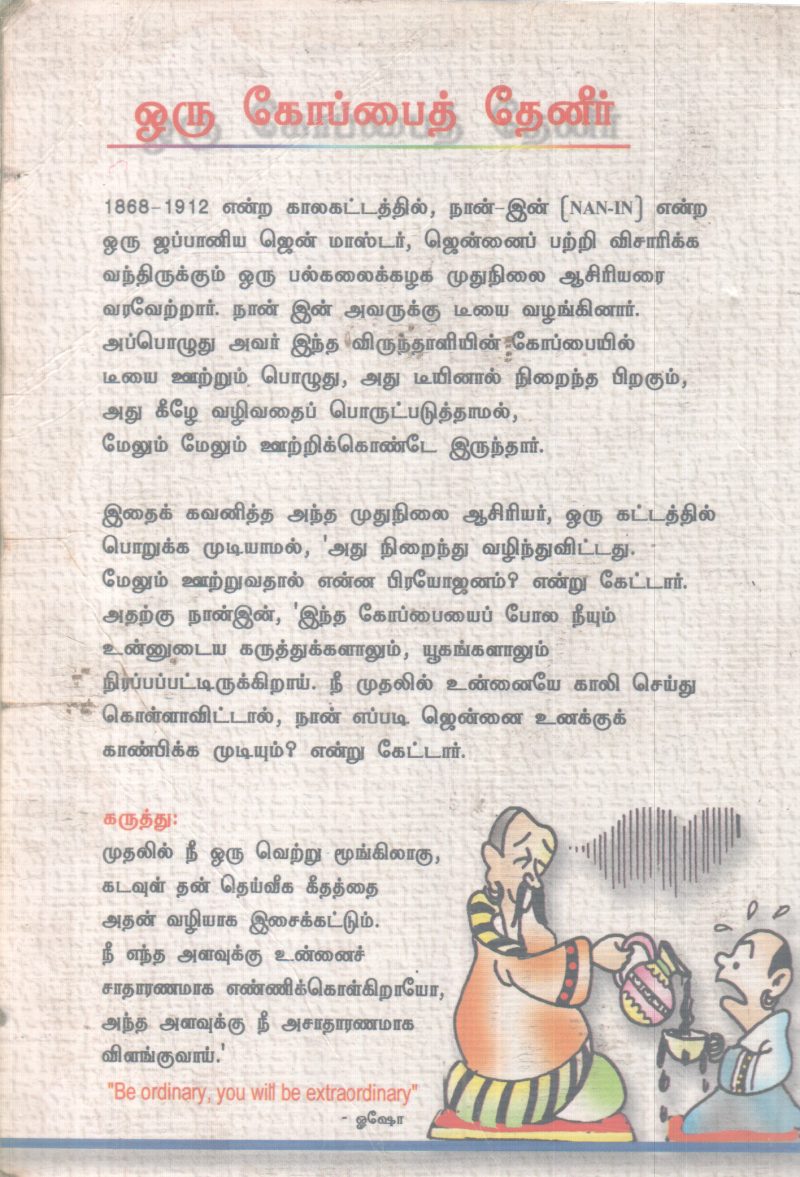 ஒரு கோப்பைத் தேனீர்
1868-1912 என்ற காலகட்டத்தில், நான்-இன் (NAN-IN) என்ற
ஒரு ஜப்பானிய ஜென் மாஸ்டர், ஜென்னைப் பற்றி விசாரிக்க
வந்திருக்கும் ஒரு பல்கலைக்கழக முதுநிலை ஆசிரியரை
வரவேற்றார். நான் இன் அவருக்கு டீயை வழங்கினார்.
அப்பொழுது அவர் இந்த விருந்தாளியின் கோப்பையில்
டீயை ஊற்றும் பொழுது, அது டீயினால் நிறைந்த பிறகும்,
அது கீழே வழிவதைப் பொருட்படுத்தாமல்,
மேலும் மேலும் ஊற்றிக்கொண்டே இருந்தார்.
இதைக் கவனித்த அந்த முதுநிலை ஆசிரியர், ஒரு கட்டத்தில்
பொறுக்க முடியாமல், 'அது நிறைந்து வழிந்துவிட்டது.
மேலும் ஊற்றுவதால் என்ன பிரயோஜனம்? என்று கேட்டார்.
அதற்கு நான்இன், 'இந்த கோப்பையைப் போல நீயும்
உன்னுடைய கருத்துக்களாலும், யூகங்களாலும்
நிரப்பப்பட்டிருக்கிறாய். நீ முதலில் உன்னையே காலி செய்து
கொள்ளாவிட்டால், நான் எப்படி ஜென்னை உனக்குக்
காண்பிக்க முடியும்? என்று கேட்டார்.
கருத்து:
முதலில் நீ ஒரு வெற்று மூங்கிலாகு,
கடவுள் தன் தெய்வீக கீதத்தை
அதன் வழியாக இசைக்கட்டும்.
நீ எந்த அளவுக்கு உன்னைச்
சாதாரணமாக எண்ணிக்கொள்கிறாயோ,
அந்த அளவுக்கு நீ அசாதாரணமாக
விளங்குவாய்.'
"Be ordinary, you will be extraordinary"
- ஓஷோ